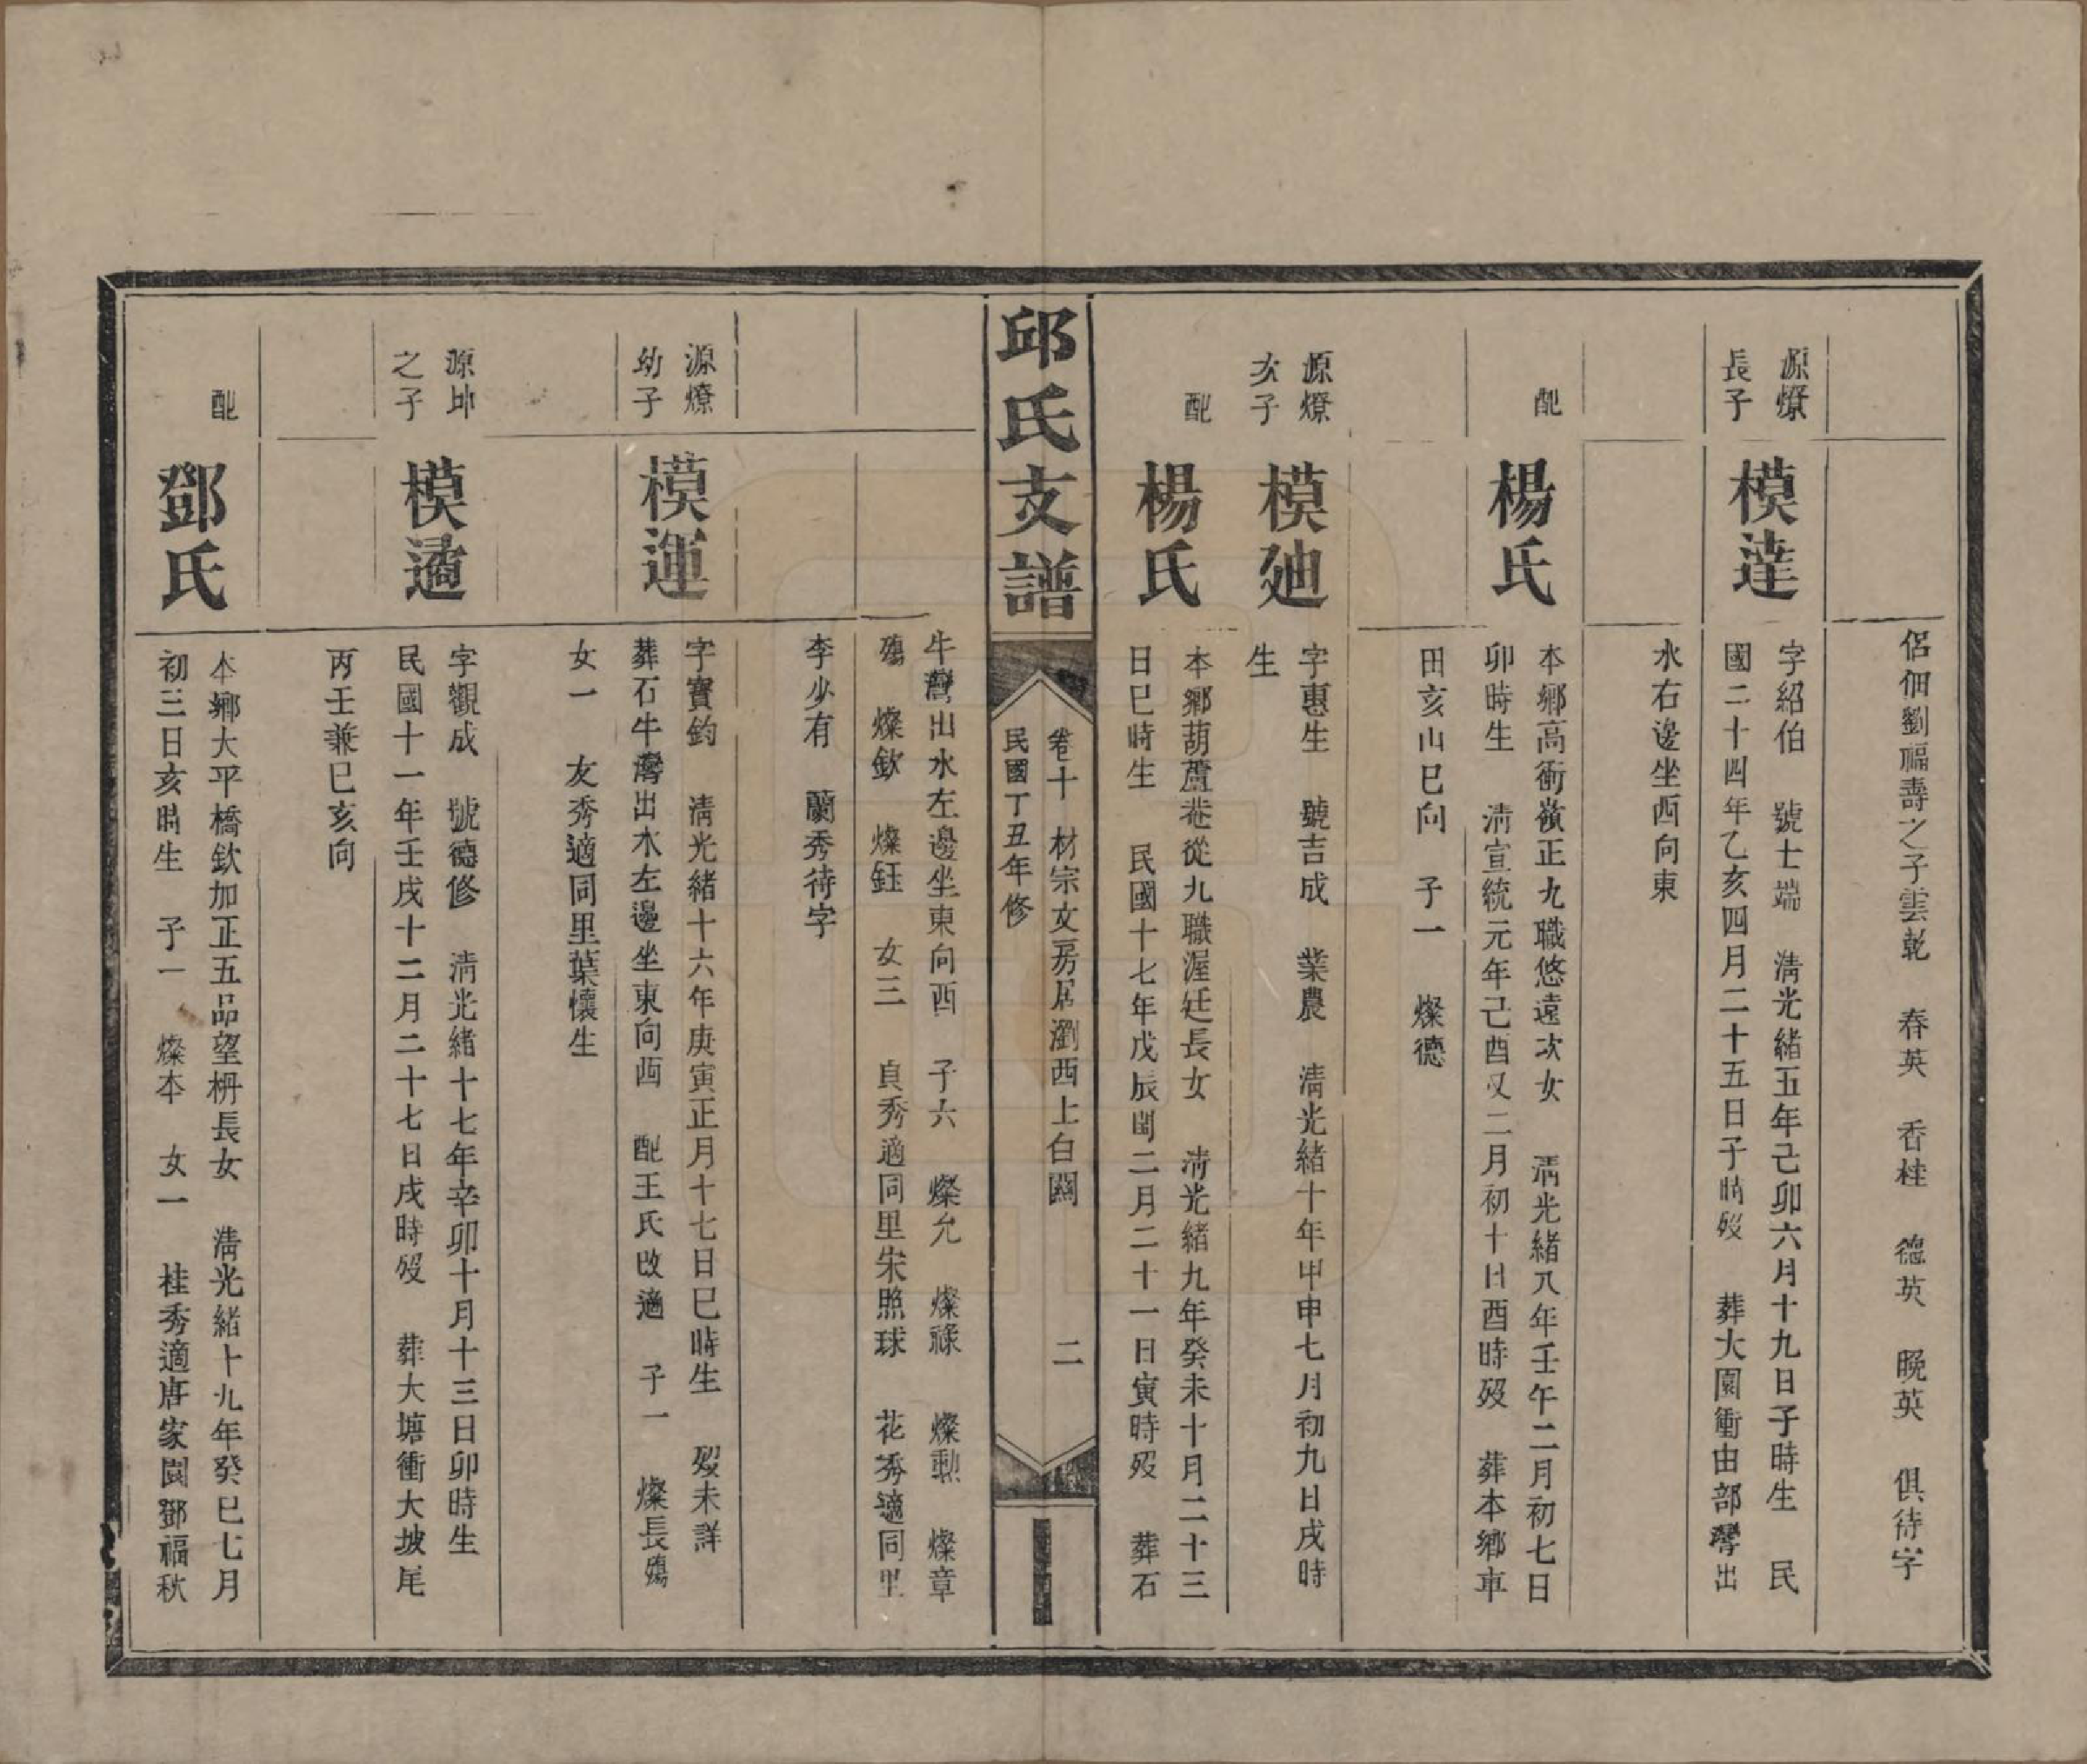 侶佃劉福壽之子雲乾　春英　香桂　德英　晚英　俱待字
源燎長子
模達
字紹伯　號士端　淸光緒五年己卯六月十九日子時生　民
國二十四年乙亥四月二十五日子時歿　葬大園衝由部灣出
水右邊坐西向東
配
楊氏
本鄉高衝嶺正九職悠遠次女　淸光緒八年壬午二月初七日
卯時生　淸宣統元年己酉又二月初十日酉時歿　葬本鄉車
田亥山巳向　子一　燦德
源燎次子
模廸
字惠生　號吉成　業農　淸光緒十年甲申七月初九日戌時
生
配
楊氏
本鄉葫蘆巷從九職渥廷長女　淸光緒九年癸未十月二十三
日巳時生　民國十七年戊辰閏二月二十一日寅時歿　葬石
邱氏支譜
卷十　材宗文房居瀏西上白關　二
民國丁丑年修
牛灣出水左邊坐東向西　子六　燦允　燦祿　燦勳　燦章
殤　燦欽　燦鈺　女三　貞秀適同里宋照球　花秀適同里
李少有　蘭秀待字
源燎幼子
模運
字寶鈞　淸光緒十六年庚寅正月十七日巳時生　歿未詳
葬石牛灣出水左邊坐東向西　配王氏改適　子一　燦長殤
女一　友秀適同里葉懷生
源坤之子
模遹
字觀成　號德修　淸光緒十七年辛卯十月十三日卯時生
民國十一年壬戌十二月二十七日戌時歿　葬大塘衝大坡尾
丙壬兼巳亥向
配
鄧氏
本鄉大平橋欽加正五品望枬長女　淸光緒十九年癸巳七月
初三日亥時生　子一　燦本　女一　桂秀適唐家園鄧福秋